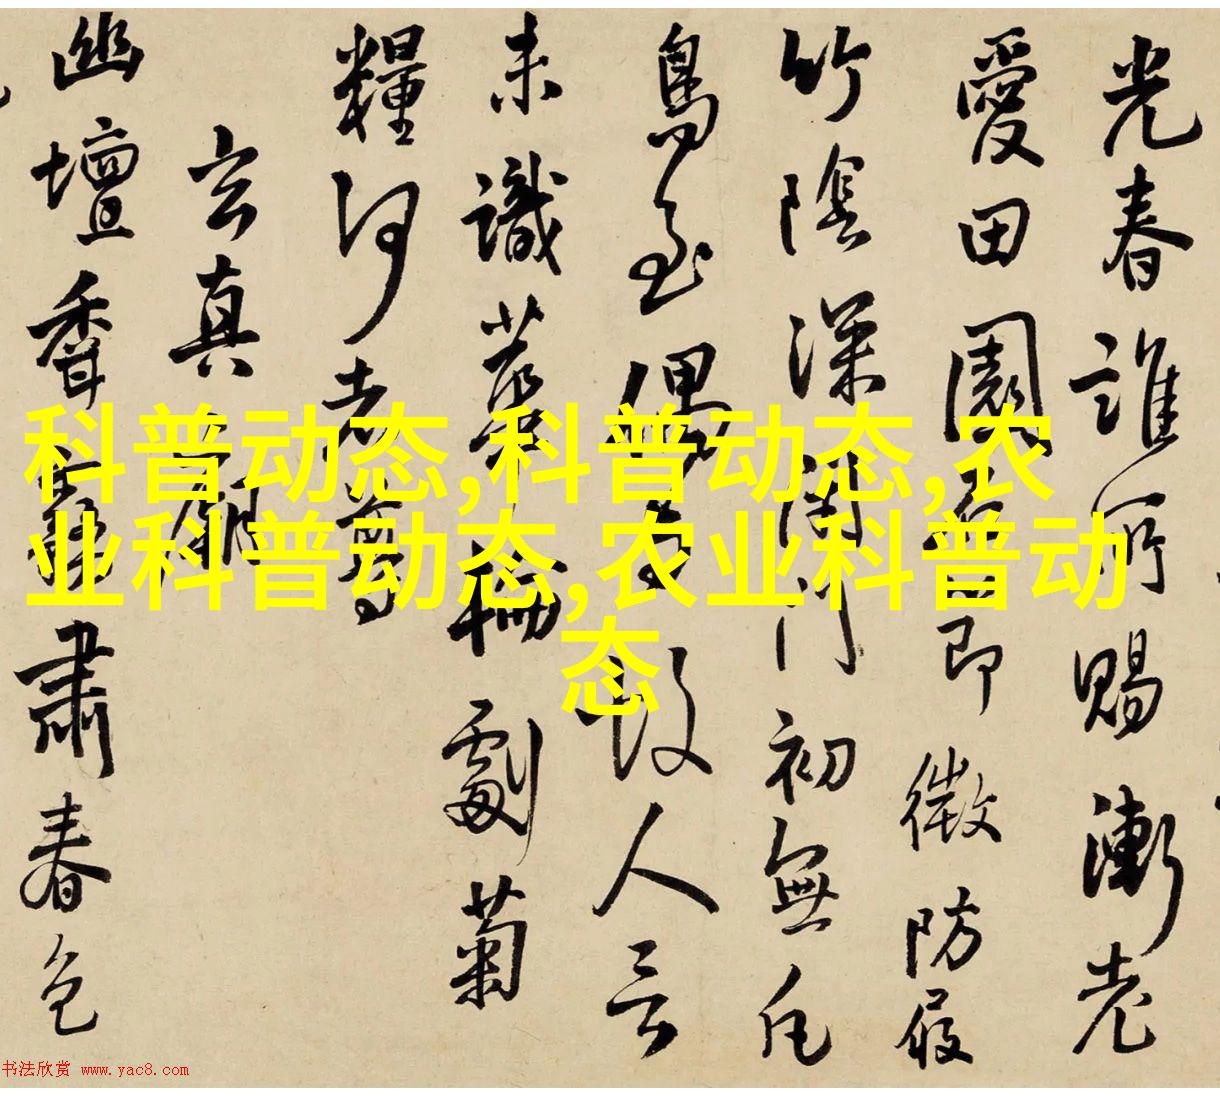 光春誰所賜漸老
愛田園
即微防屐
竹陰深閉門初無凡
鳥至偶
故人言
未識
劇菊
糧何老
玄真
幽壇
肅春色
科普动态,科普动态,农
业科普动态,农业科普动
态
书法欣赏 www.yac8.com